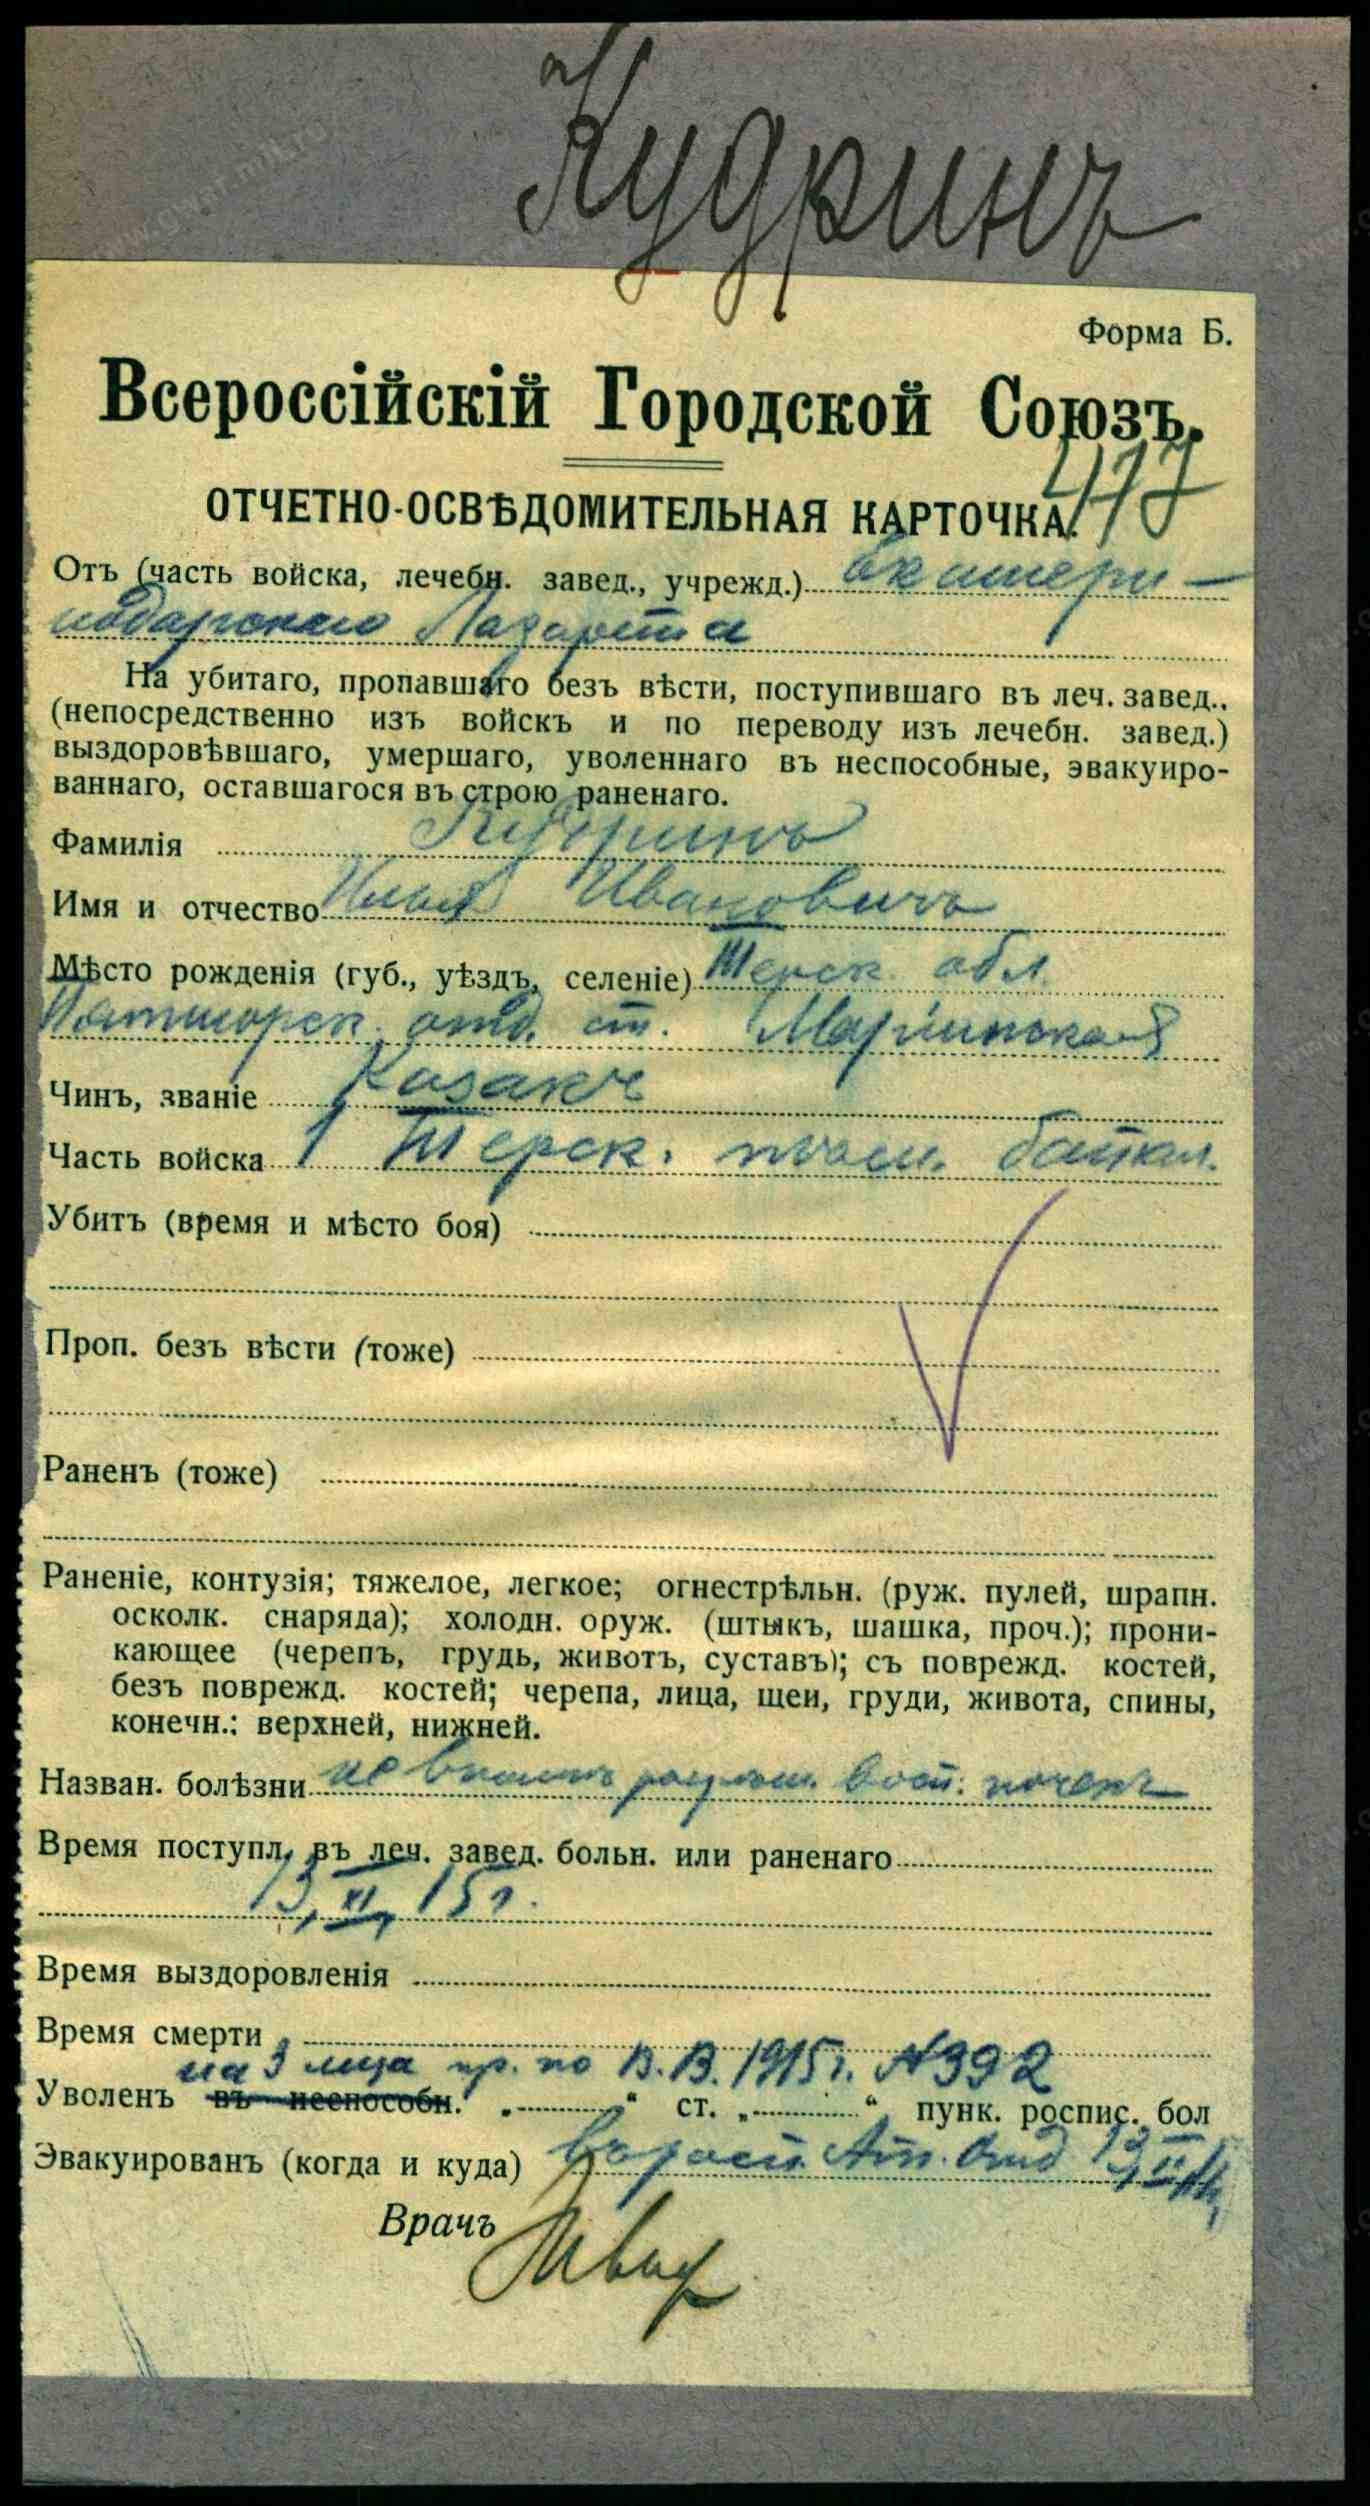 Кудринъ
Форма Б.
Всероссійскій Городской Союзъ.
477
ОТЧЕТНО-ОСВѢДОМИТЕЛЬНАЯ КАРТОЧКА.
Отъ (часть войска, лечебн. завед., учрежд.) Екатери-
нодарскаго Лазарета
На убитаго, пропавшаго безъ вѣсти, поступившаго въ леч. завед.,
(непосредственно изъ войскъ и по переводу изъ лечебн. завед.)
выздоровѣвшаго, умершаго, уволеннаго въ неспособные, эвакуиро-
ваннаго, оставшагося въ строю раненаго.
Фамилія Кудринъ
Имя и отчество Илья Ивановичъ
Мѣсто рожденія (губ., уѣздъ, селеніе) Терск. обл.
Пятигорск. отд. ст. Маріинская
Чинъ, званіе Казакъ
Часть войска 1 Терск. пласт. батал.
Убитъ (время и мѣсто боя)
Проп. безъ вѣсти (тоже)
Раненъ (тоже)
Раненіе, контузія; тяжелое, легкое; огнестрѣльн. (руж. пулей, шрапн.
осколк. снаряда); холодн. оруж. (штыкъ, шашка, проч.); прони-
кающее (черепъ, грудь, животъ, суставъ); съ поврежд. костей,
безъ поврежд. костей; черепа, лица, шеи, груди, живота, спины,
конечн.: верхней, нижней.
Назван. болѣзни вост. почекъ
Время поступл. въ леч. завед. больн. или раненаго
13, XI, 15 г.
Время выздоровленія
Время смерти
на 3 мца пр. по В. В. 1915 г. №392
Уволенъ въ неспособн. „ “ ст. „ “ пунк. роспис. бол
Эвакуированъ (когда и куда) Ат. Отд
Врачъ